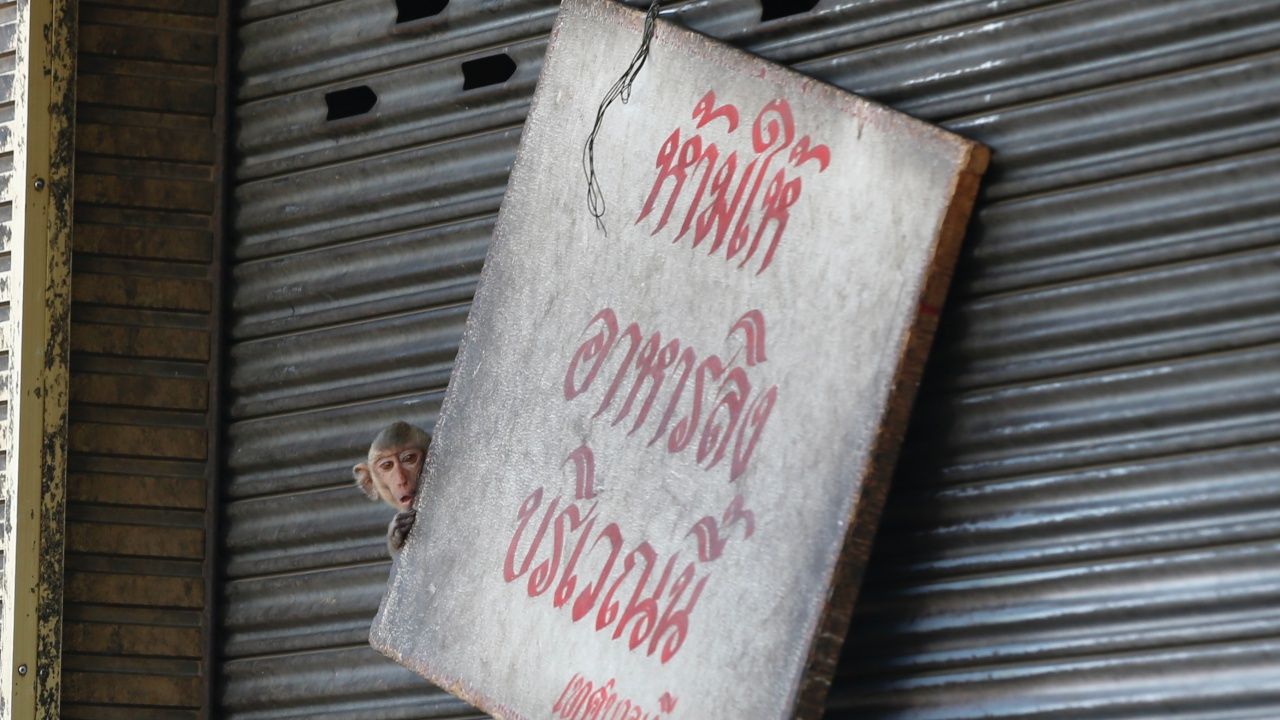 ห้ามให้
อาหารลิง
บริเวณนี้